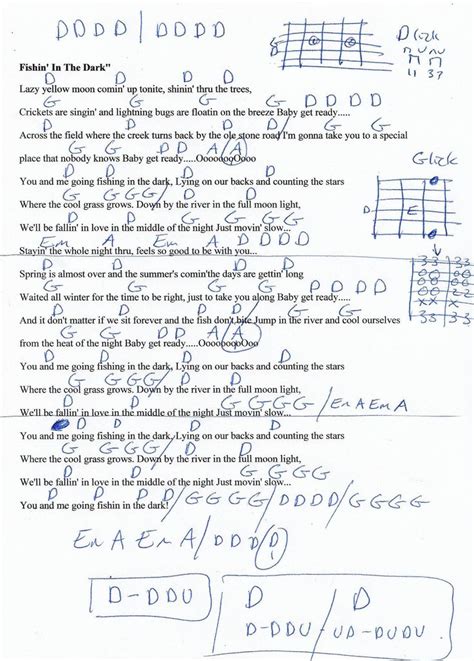 D D D D / D D D D
D Lick
Fishin' In The Dark"
D D D D
Lazy yellow moon comin' up tonite, shinin' thru the trees,
G G G D D D D
Crickets are singin' and lightning bugs are floatin on the breeze Baby get ready.....
D D D / G G
Across the field where the creek turns back by the ole stone road I'm gonna take you to a special
G G D D A / A
place that nobody knows Baby get ready.....OoooOooOooo
G Lick
D D D D
You and me going fishing in the dark, Lying on our backs and counting the stars
G G G G / D D D
Where the cool grass grows. Down by the river in the full moon light,
D G G G G
We'll be fallin' in love in the middle of the night Just movin' slow...
Em A Em A D D D D
Stayin' the whole night thru, feels so good to be with you...
D D D D
Spring is almost over and the summer's comin'the days are gettin' long
G G G G D D D D
Waited all winter for the time to be right, just to take you along Baby get ready.....
D D D D G G
And it don't matter if we sit forever and the fish don't bite Jump in the river and cool ourselves
G G D D A / A
from the heat of the night Baby get ready.....OoooOooOooo
D D D D
You and me going fishing in the dark, Lying on our backs and counting the stars
G G G G / D D D
Where the cool grass grows. Down by the river in the full moon light,
D G G G G / Em A Em A
We'll be fallin' in love in the middle of the night Just movin' slow...
D D D
You and me going fishing in the dark, Lying on our backs and counting the stars
G G G G D D D
Where the cool grass grows. Down by the river in the full moon light,
D G G G G
We'll be fallin' in love in the middle of the night Just movin' slow...
D D D D / G G G G / D D D D / G G G G
You and me going fishin in the dark!
Em A Em A / D D D / D
D - D D U
D D
D - D D U - U D - D U D U